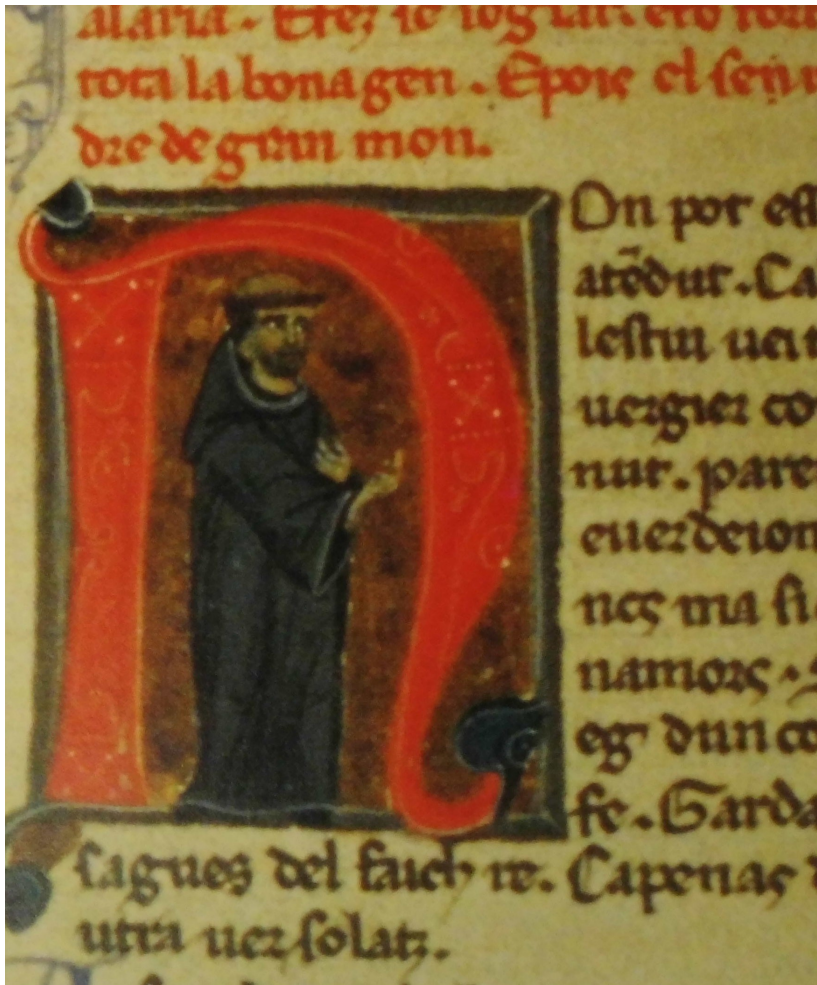 alaria. Efez se ioglar. e fo
tota la bona gen. E pois el sen
dre de gran mon.
On pot ess
atēdut. Ca
lestiu uei
uergier co
nut. pare
euerdeion
nes ma si
namors.
eg dun co
fe. Garda
sagues del faich re. Capenas
utra uer solatz.